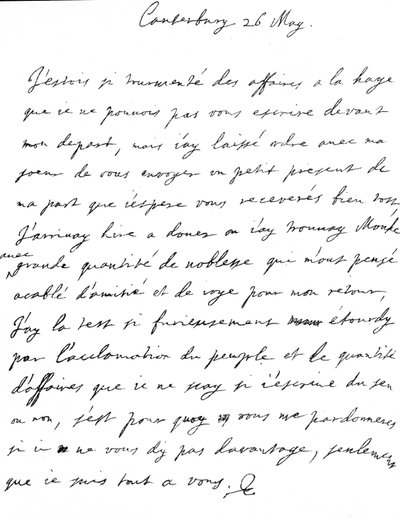 Canterbury 26 May.
J'estois si tourmenté des affaires a la haye
que ie ne pouvois pas vous escrire devant
mon depart, mais i'ay laissé ordre avec ma
soeur de vous envoyer un petit present de
ma part que i'espere vous receverés bien tost
J'arrivay hier a douer ou i'ay trouvay Monk
avec
grande quantité de noblesse qui m'ont pensé
acablé d'amitié et de ioye pour mon retour,
J'ay la test si furieusement étourdy
par l'acclamation du peuple et le quantité
d'affaires que ie ne scay si i'escrive du sen
ou non, s'est pour quoy vous me pardonneres
si ie ne vous dy pas davantage, seulement
que ie suis tout a vous.